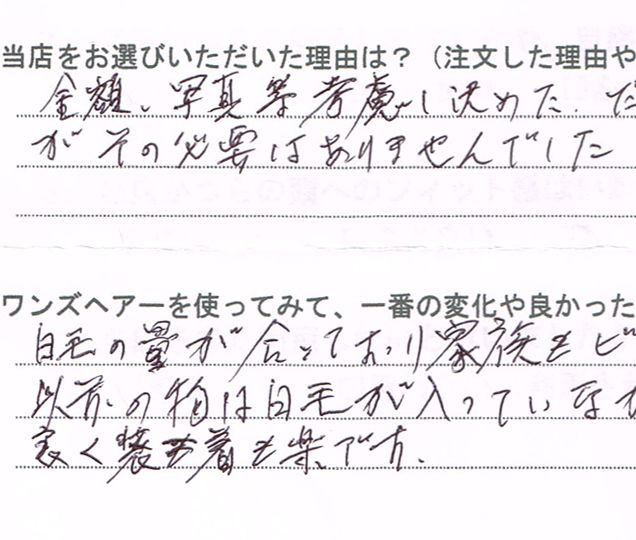 当店をお選びいただいた理由は？（注文した理由や
金額、写真等考慮し決めた.だ
がその必要はありませんでした
ワンズヘアーを使ってみて、一番の変化や良かった
白毛の量が合っており家族もビ
以前の物は白毛が入っていなか
良く装着も楽です.